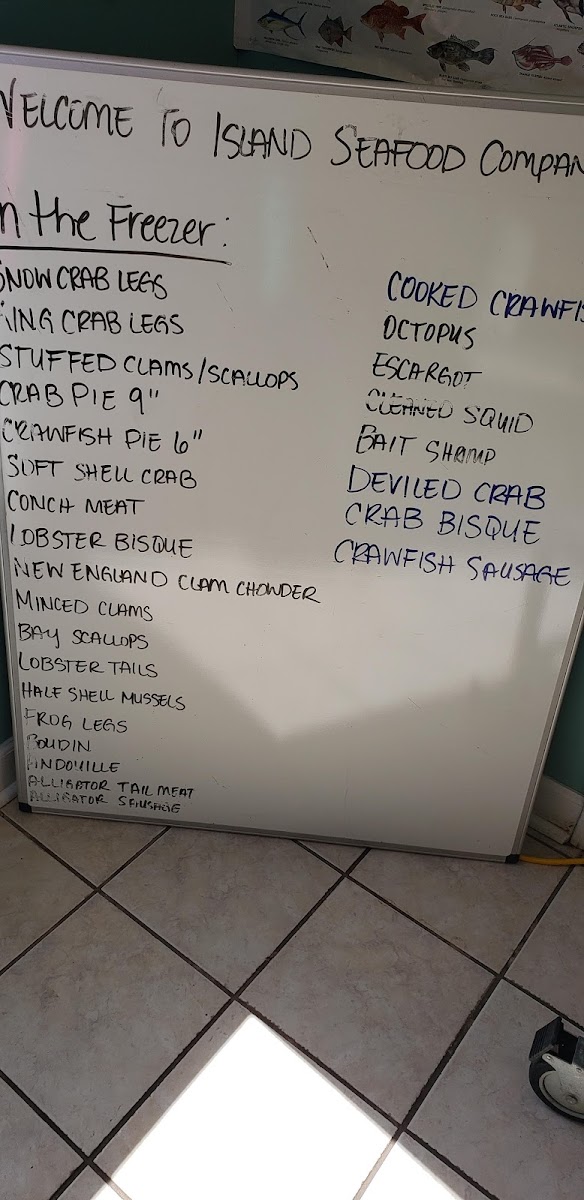 WELCOME TO ISLAND SEAFOOD COMPAN
n the Freezer:
SNOW CRAB LEGS
KING CRAB LEGS
STUFFED CLAMS/SCALLOPS
CRAB PIE 9"
CRAWFISH PIE 6"
SOFT SHELL CRAB
CONCH MEAT
LOBSTER BISQUE
NEW ENGLAND CLAM CHOWDER
MINCED CLAMS
BAY SCALLOPS
LOBSTER TAILS
HALF SHELL MUSSELS
FROG LEGS
BOUDIN
ANDOUILLE
ALLIGATOR TAIL MEAT
ALLIGATOR SAUSAGE
COOKED CRAWFIS
OCTOPUS
ESCARGOT
CLEANED SQUID
BAIT SHRIMP
DEVILED CRAB
CRAB BISQUE
CRAWFISH SAUSAGE